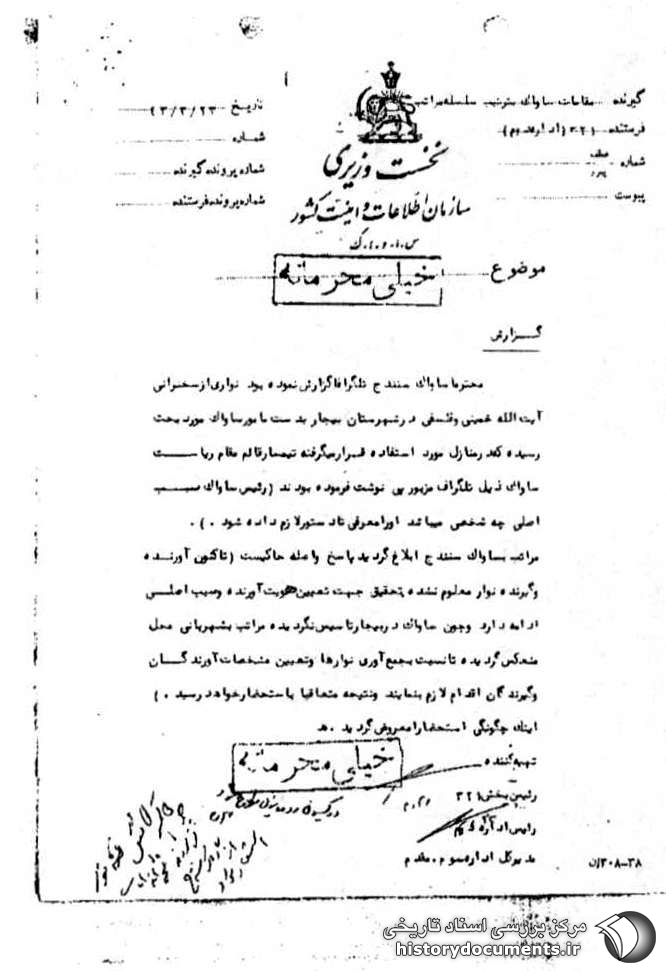 گیرنده مقامات ساواک بترتیب سلسله مراتب
فرستنده ۳۲۱ (اداره دوم)
شماره
پیوست
تاریخ ۴۳/۳/۲۳
شماره
شماره پرونده گیرنده
شماره پرونده فرستنده
نخست وزیری
سازمان اطلاعات و امنیت کشور
س.ا.و.ا.ک
موضوع
خیلی محرمانه
گزارش
محترما ساواک سنندج تلگرافا گزارش نموده بود نواری از سخنرانی
آیت الله خمینی و فلسفی در شهرستان بیجار بدست مامور ساواک مورد بحث
رسیده که در منازل مورد استفاده قرار میگرفته تیمسار قائم مقام ریاست
ساواک ذیل تلگراف مزبور پی نوشت فرموده بودند (رئیس ساواک مسبب
اصلی چه شخصی میباشد اورا معرفی تا دستور لازم داده شود .) .
مراتب بساواک سنندج ابلاغ گردید پاسخ واصله حاکیست (تاکنون آورنده
وگیرنده نوار معلوم نشده تحقیق جهت تعیین هویت آورنده ومسبب اصلی
ادامه دارد وچون ساواک در بیجار تاسیس نگردیده مراتب بشهربانی محل
منعکس گردیده تا نسبت بجمع آوری نوارها وتعیین مشخصات آورندگان
وگیرندگان اقدام لازم بنمایند ونتیجه متعاقبا باستحضار خواهد رسید .)
اینک چگونگی استحضارا معروض گردید . هـ
تهیه کننده
خیلی محرمانه
رئیس بخش ۳۲۱
رئیس اداره دوم
مدیرکل اداره سوم . مقدم
۳۰۸-۳۸/ن
مرکز بررسی اسناد تاریخی
historydocuments.ir